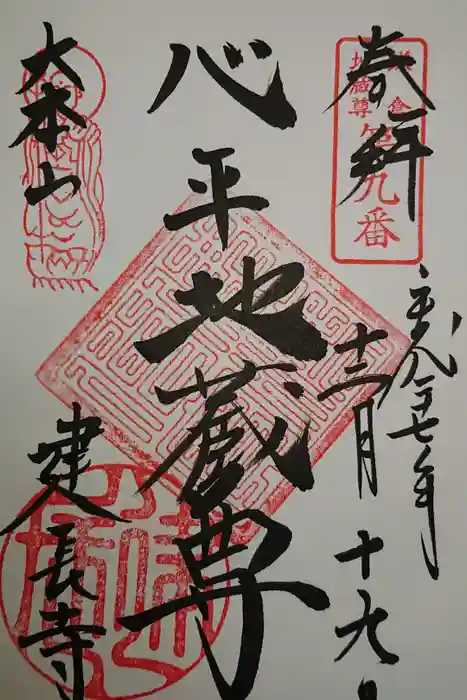 奉拝
鎌倉
地蔵尊
第九番
平成二十七年
十二月十九日
心平地蔵尊
大本山
建長寺